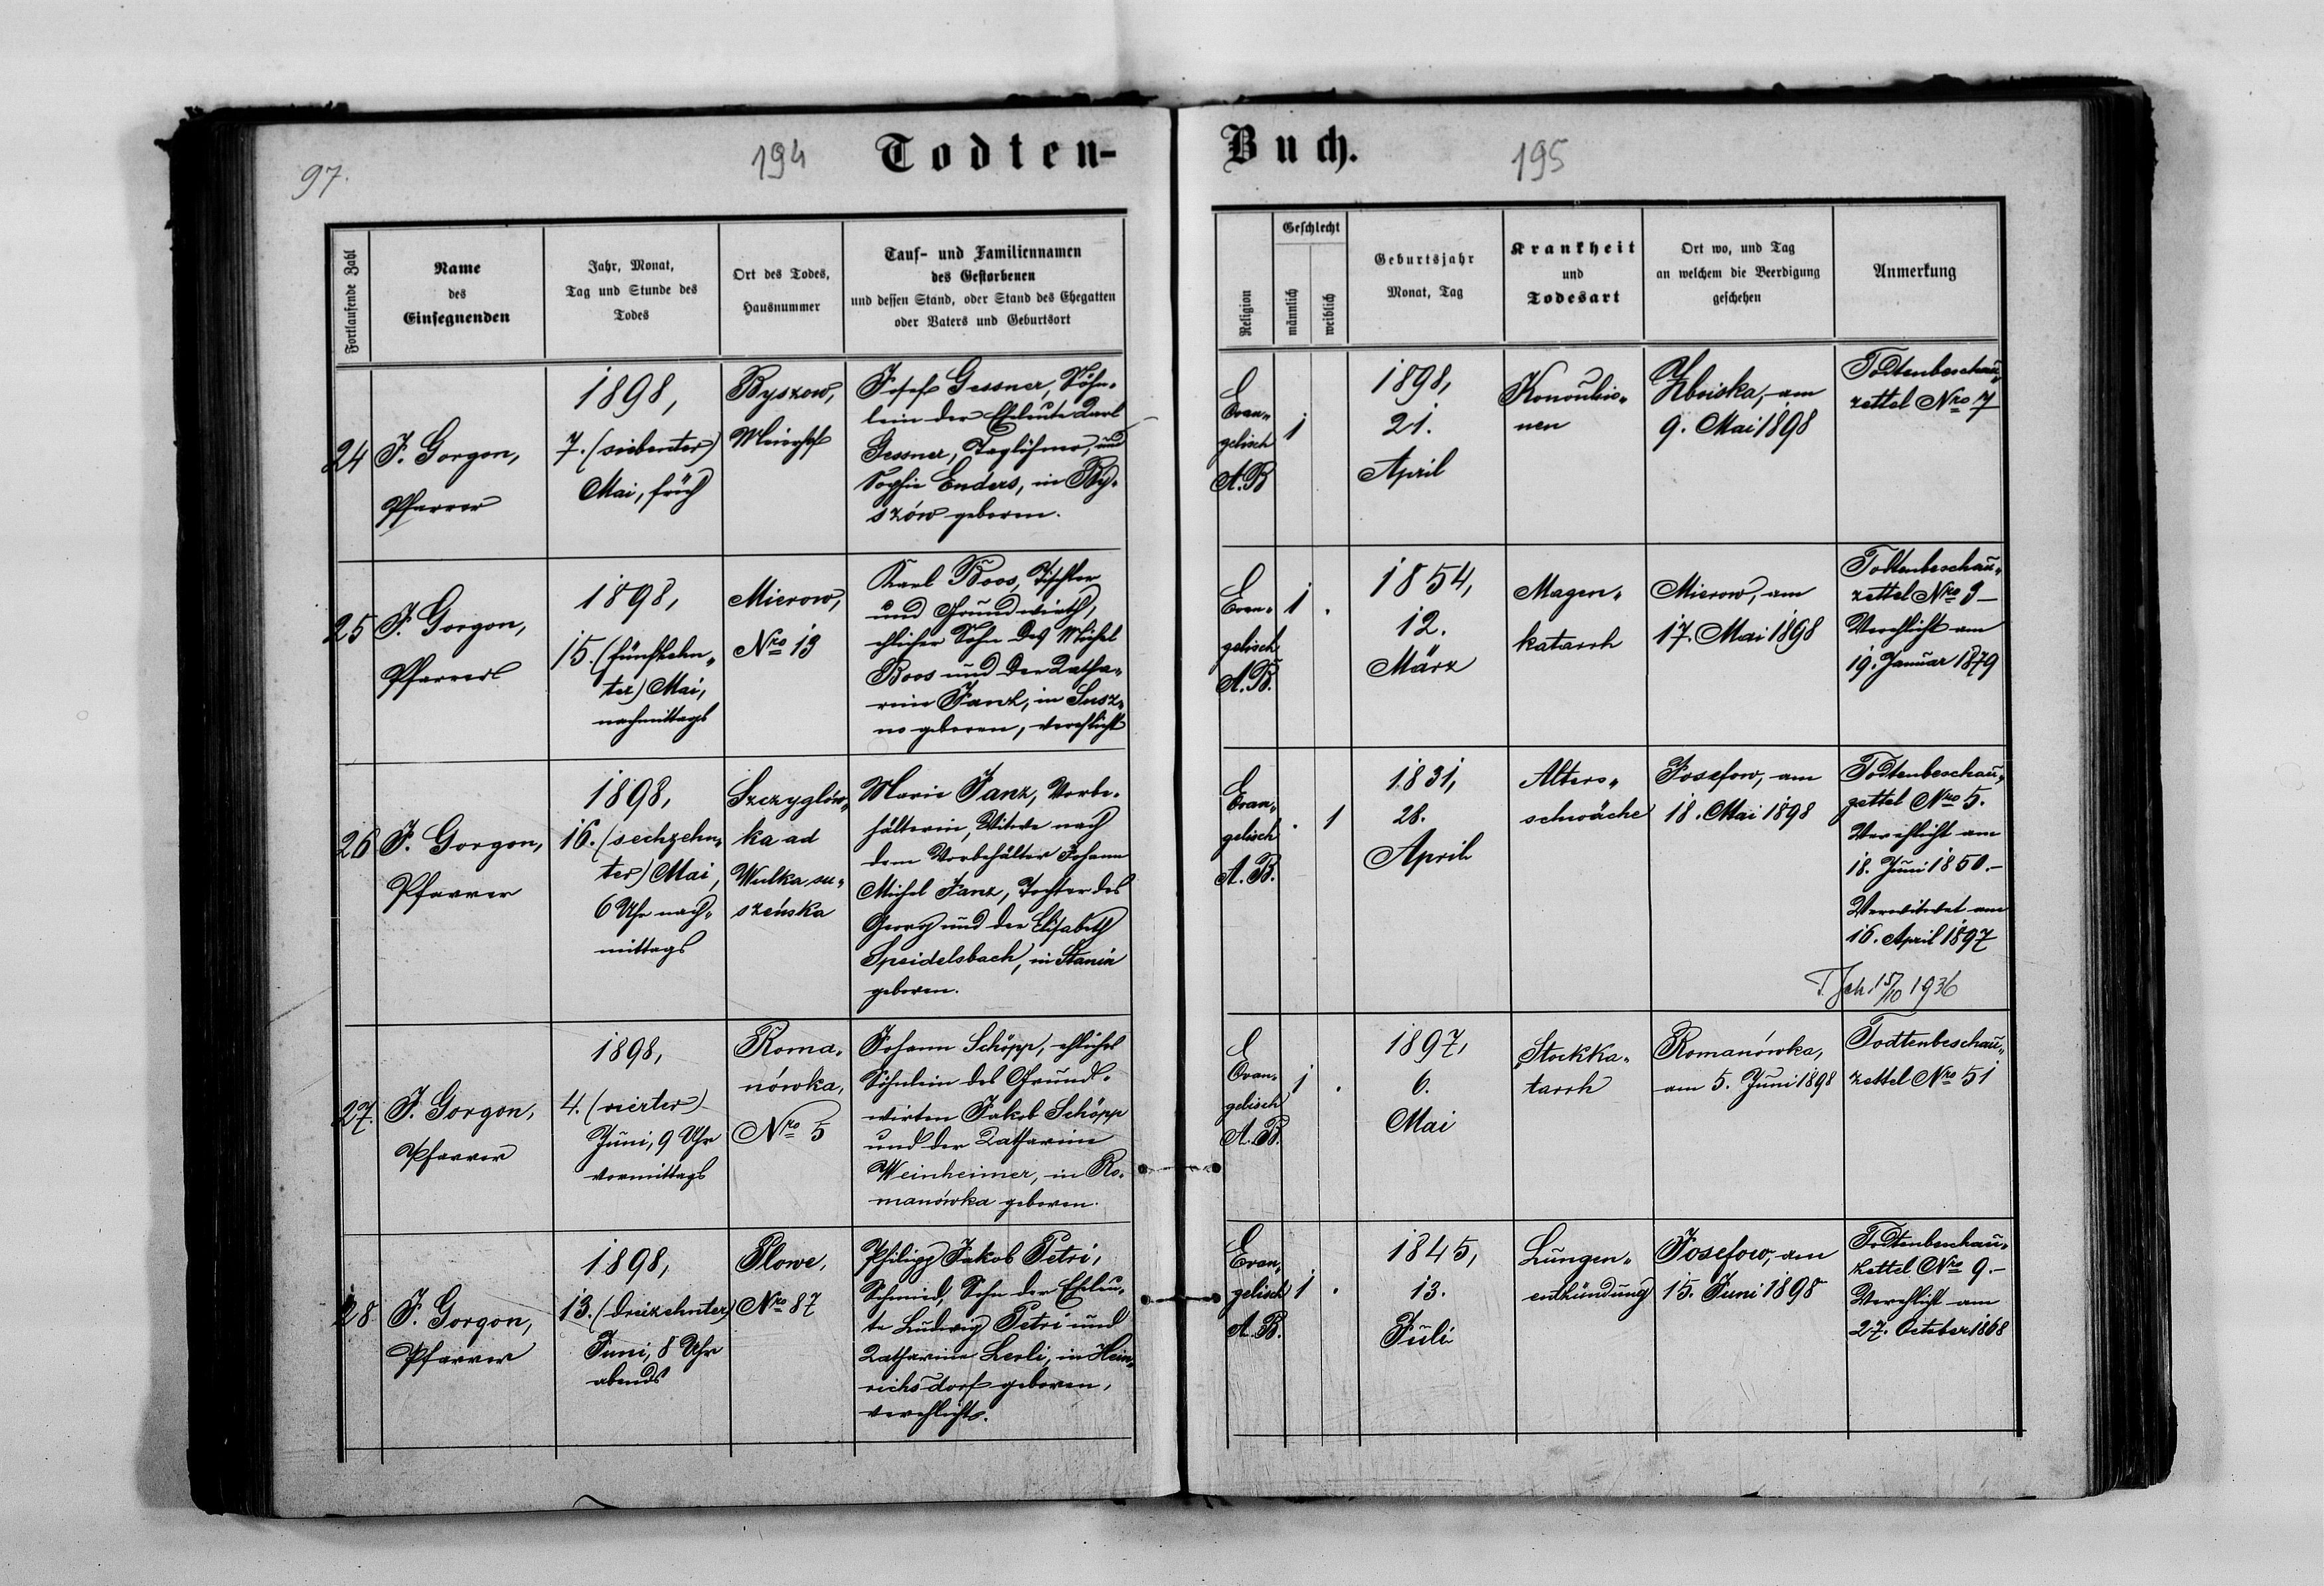 97.
194
Todten-
Buch.
195
Fortlaufende Zahl
Name
des
Einsegnenden
Jahr, Monat,
Tag und Stunde des
Todes
Ort des Todes,
Hausnummer
Tauf- und Familiennamen
des Gestorbenen
und dessen Stand, oder Stand des Ehegatten
oder Vaters und Geburtsort
Religion
Geschlecht
männlich
weiblich
Geburtsjahr
Monat, Tag
Krankheit
und
Todesart
Ort wo, und Tag
an welchem die Beerdigung
geschehen
Anmerkung
24
J. Gorgon,
Pfarrer
1898,
7. (siebenter)
Mai, früh
Byszow,
Meierhof
Josef Gessner, Söhn-
lein der Eheleute Karl
Gessner, Taglöhner, und
Sophie Enders, in By-
szów geboren.
Evan-
gelisch
A. B
1
1898,
21.
April
Konvulsio-
nen
Zboiska, am
9. Mai 1898
Todtenbeschau-
zettel Nro 7
25
J. Gorgon,
Pfarrer
1898,
15. (fünfzehn-
ter) Mai,
nachmittags
Mierow,
Nro 13
Karl Boos, Tischler
und Grundwirth,
ehlicher Sohn des Michel
Boos und der Katha-
rine Janz, in Susz-
no geboren, verehlicht
Evan-
gelisch
A. B.
1 .
1854,
12.
März
Magen-
katarrh
Mierow, am
17. Mai 1898
Todtenbeschau-
zettel Nro 9 –
Verehlicht am
19. Januar 1879
26
J. Gorgon,
Pfarrer
1898,
16. (sechzehn-
ter) Mai,
6 Uhr nach-
mittags
Szczyglów-
ka ad
Wulka su-
szeńska
Marie Janz, Vorbe-
hälterin, Witwe nach
dem Vorbehälter Johann
Michel Janz, Tochter des
Georg und der Elisabeth
Speidelsbach, in Stanin
geboren.
Evan-
gelisch
A. B.
. 1
1831,
28.
April
Alters-
schwäche
Josefow, am
18. Mai 1898
Todtenbeschau-
zettel Nro 5.
Verehlicht am
18. Juni 1850. –
Verwitwet am
16. April 1897
15/10 1936
27.
J. Gorgon,
Pfarrer
1898,
4. (vierter)
Juni, 9 Uhr
vormittags
Roma-
nówka,
Nro 5
Johann Schöpp, ehliches
Söhnlein des Grund-
wirten Jakob Schöpp
und der Katharine
Weinheimer, in Ro-
manówka geboren.
Evan-
gelisch
A. B.
1 .
1897,
6.
Mai
Stockka-
tarrh
Romanówka,
am 5. Juni 1898
Todtenbeschau-
zettel Nro 51
28
J. Gorgon,
Pfarrer
1898,
13. (dreizehnter)
Juni, 8 Uhr
abends
Plowe,
Nro 87
Philipp Jakob Petri,
Schmied, Sohn der Eheleu-
te Ludwig Petri und
Katharine Lerli, in Hein-
richsdorf geboren,
verehlicht.
Evan-
gelisch
A. B.
1 .
1845,
13.
Juli
Lungen-
entzündung
Josefow, am
15. Juni 1898
Todtenbeschau-
zettel Nro 9. –
Verehlicht am
27. October 1868